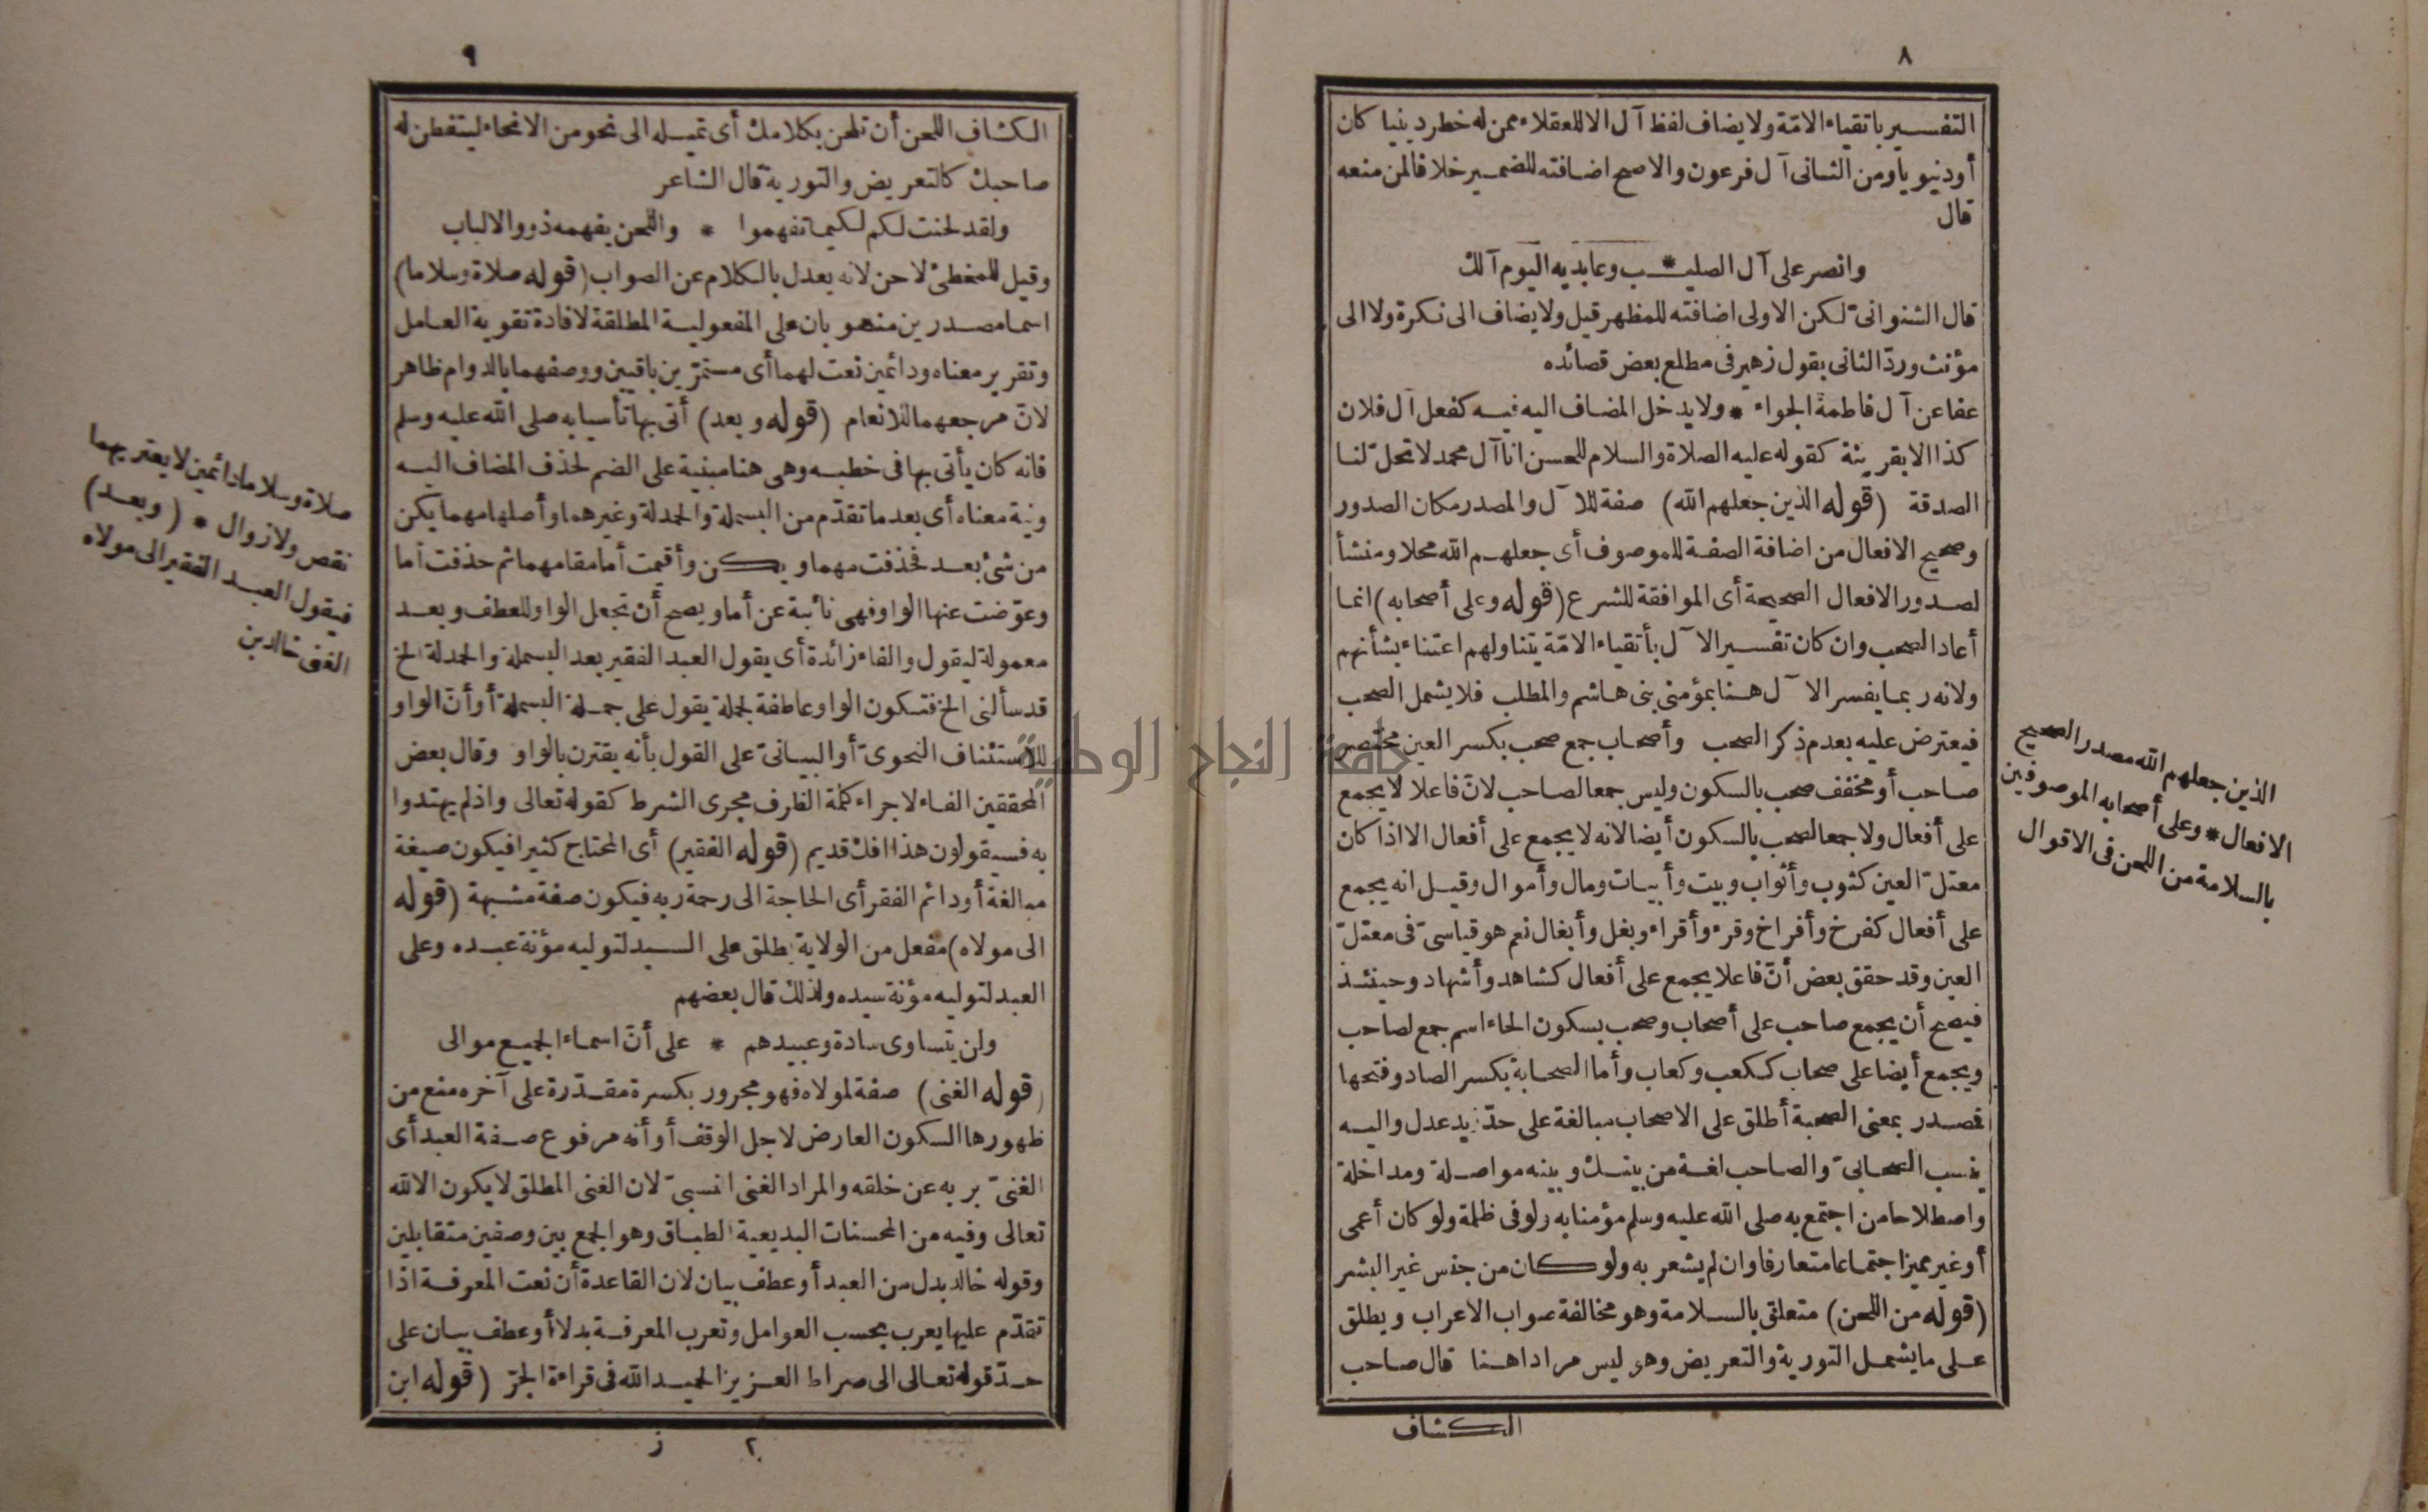 ٨
التفسير باتقياء الامّة ولا يضاف لفظ آل الا للعقلاء ممن له خطر دينيا كان
أو دنيويا ومن الثانى آل فرعون والاصح اضافته للضمير خلافا لمن منعه
قال
وانصر على آل الصليـ * ـب وعابديه اليوم آلك
قال الشنوانىّ لكن الاولى اضافته للمظهر قيل ولا يضاف الى نكرة ولا الى
مؤنث وردّ الثانى بقول زهير فى مطلع بعض قصائده
عفا عن آل فاطمة الجواء * ولا يدخل المضاف اليه فيه كفعل آل فلان
كذا الا بقرينة كقوله عليه الصلاة والسلام للحسن انا آل محمد لا تحلّ لنا
الصدقة (قوله الذين جعلهم الله) صفة للآل والمصدر مكان الصدور
وصحيح الافعال من اضافة الصفة للموصوف أى جعلهم الله محلا ومنشأ
لصدور الافعال الصحيحة أى الموافقة للشرع (قوله وعلى أصحابه) انما
أعاد الصحب وان كان تفسير الآل بأتقياء الامّة يتناولهم اعتناء بشأنهم
ولانه ربما يفسر الآل هنا بمؤمنى بنى هاشم والمطلب فلا يشمل الصحب
فيعترض عليه بعدم ذكر الصحب وأصحاب جمع صحب بكسر العين مختصر
صاحب أو مخفف صحب بالسكون وليس جمعا لصاحب لانّ فاعلا لا يجمع
على أفعال ولا جمعا لصحب بالسكون أيضا لانه لا يجمع على أفعال الا اذا كان
معتلّ العين كثوب وأثواب وبيت وأبيات ومال وأموال وقيل انه يجمع
على أفعال كفرخ وأفراخ وقرء وأقراء وبغل وأبغال نعم هو قياسىّ فى معتلّ
العين وقد حقق بعض أنّ فاعلا يجمع على أفعال كشاهد وأشهاد وحينئذ
فيصح أن يجمع صاحب على أصحاب وصحب بسكون الحاء اسم جمع لصاحب
ويجمع أيضا على صحاب ككعب وكعاب وأما الصحابة بكسر الصاد وفتحها
فصدر بمعنى الصحبة أطلق على الاصحاب مبالغة على حدّ زيد عدل واليه
ينسب الصحابىّ والصاحب لغة من بينك وبينه مواصلة ومداخلة
واصطلاحا من اجتمع به صلى الله عليه وسلم مؤمنا به ولو فى ظلمة ولو كان أعمى
أو غير مميز اجتماعا متعارفا وان لم يشعر به ولو كان من جنس غير البشر
(قوله من اللحن) متعلق بالسلامة وهو مخالفة صواب الاعراب ويطلق
على ما يشمل التورية والتعريض وهو ليس مرادا هنا قال صاحب
الكشاف
الذين جعلهم الله مصدر الصحيح
الافعال * وعلى أصحابه الموصوفين
بالسلامة من اللحن فى الاقوال
٩
الكشاف اللحن أن تلحن بكلامك أى تميله الى نحو من الانحاء ليتفطن له
صاحبك كالتعريض والتورية قال الشاعر
ولقد لحنت لكم لكيما تفهموا * واللحن يفهمه ذوو الالباب
وقيل للمخطئ لاحن لانه يعدل بالكلام عن الصواب (قوله صلاة وسلاما)
اسما مصدرين منصوبان على المفعولية المطلقة لافادة تقوية العامل
وتقرير معناه ودائمين نعت لهما أى مستمرّين باقيين ووصفهما بالدوام ظاهر
لانّ مرجعهما للانعام (قوله وبعد) أتى بها تأسيا به صلى الله عليه وسلم
فانه كان يأتى بها فى خطبه وهى هنا مبنية على الضم لحذف المضاف اليه
ونية معناه أى بعد ما تقدّم من البسملة والحمدلة وغيرهما وأصلها مهما يكن
من شئ بعد فحذفت مهما ويكن وأقيمت أما مقامهما ثم حذفت أما
وعوّضت عنها الواو فهى نائبة عن أما ويصح أن تجعل الواو للعطف وبعد
معمولة ليقول والفاء زائدة أى يقول العبد الفقير بعد البسملة والحمدلة الخ
قد سألنى الخ فتكون الواو عاطفة لجملة يقول على جملة البسملة أو أنّ الواو
للاستئناف النحوىّ أو البيانىّ على القول بأنه يقترن بالواو وقال بعض
المحققين الفاء لاجراء كلمة الظرف مجرى الشرط كقوله تعالى واذ لم يهتدوا
به فسيقولون هذا افك قديم (قوله الفقير) أى المحتاج كثيرا فيكون صيغة
مبالغة أو دائم الفقر أى الحاجة الى رحمة ربه فيكون صفة مشبهة (قوله
الى مولاه) مفعل من الولاية يطلق على السيد لتوليه مؤنة عبده وعلى
العبد لتوليه مؤنة سيده ولذلك قال بعضهم
ولن يتساوى سادة وعبيدهم * على أنّ اسماء الجميع موالى
(قوله الغنى) صفة لمولاه فهو مجرور بكسرة مقدّرة على آخره منع من
ظهورها السكون العارض لاجل الوقف أو أنه مرفوع صفة العبد أى
الغنىّ بربه عن خلقه والمراد الغنى النسبىّ لان الغنى المطلق لا يكون الا لله
تعالى وفيه من المحسنات البديعية الطباق وهو الجمع بين وصفين متقابلين
وقوله خالد بدل من العبد أو عطف بيان لان القاعدة أن نعت المعرفة اذا
تقدّم عليها يعرب بحسب العوامل وتعرب المعرفة بدلا أو عطف بيان على
حدّ قوله تعالى الى صراط العزيز الحميد الله فى قراءة الجرّ (قوله ابن
٢ ز
صلاة وسلاما دائمين لا يعتريهما
نقص ولا زوال * (وبعد)
فيقول العبد الفقير الى مولاه
الغنى خالد بن
جامعة النجاح الوطنية